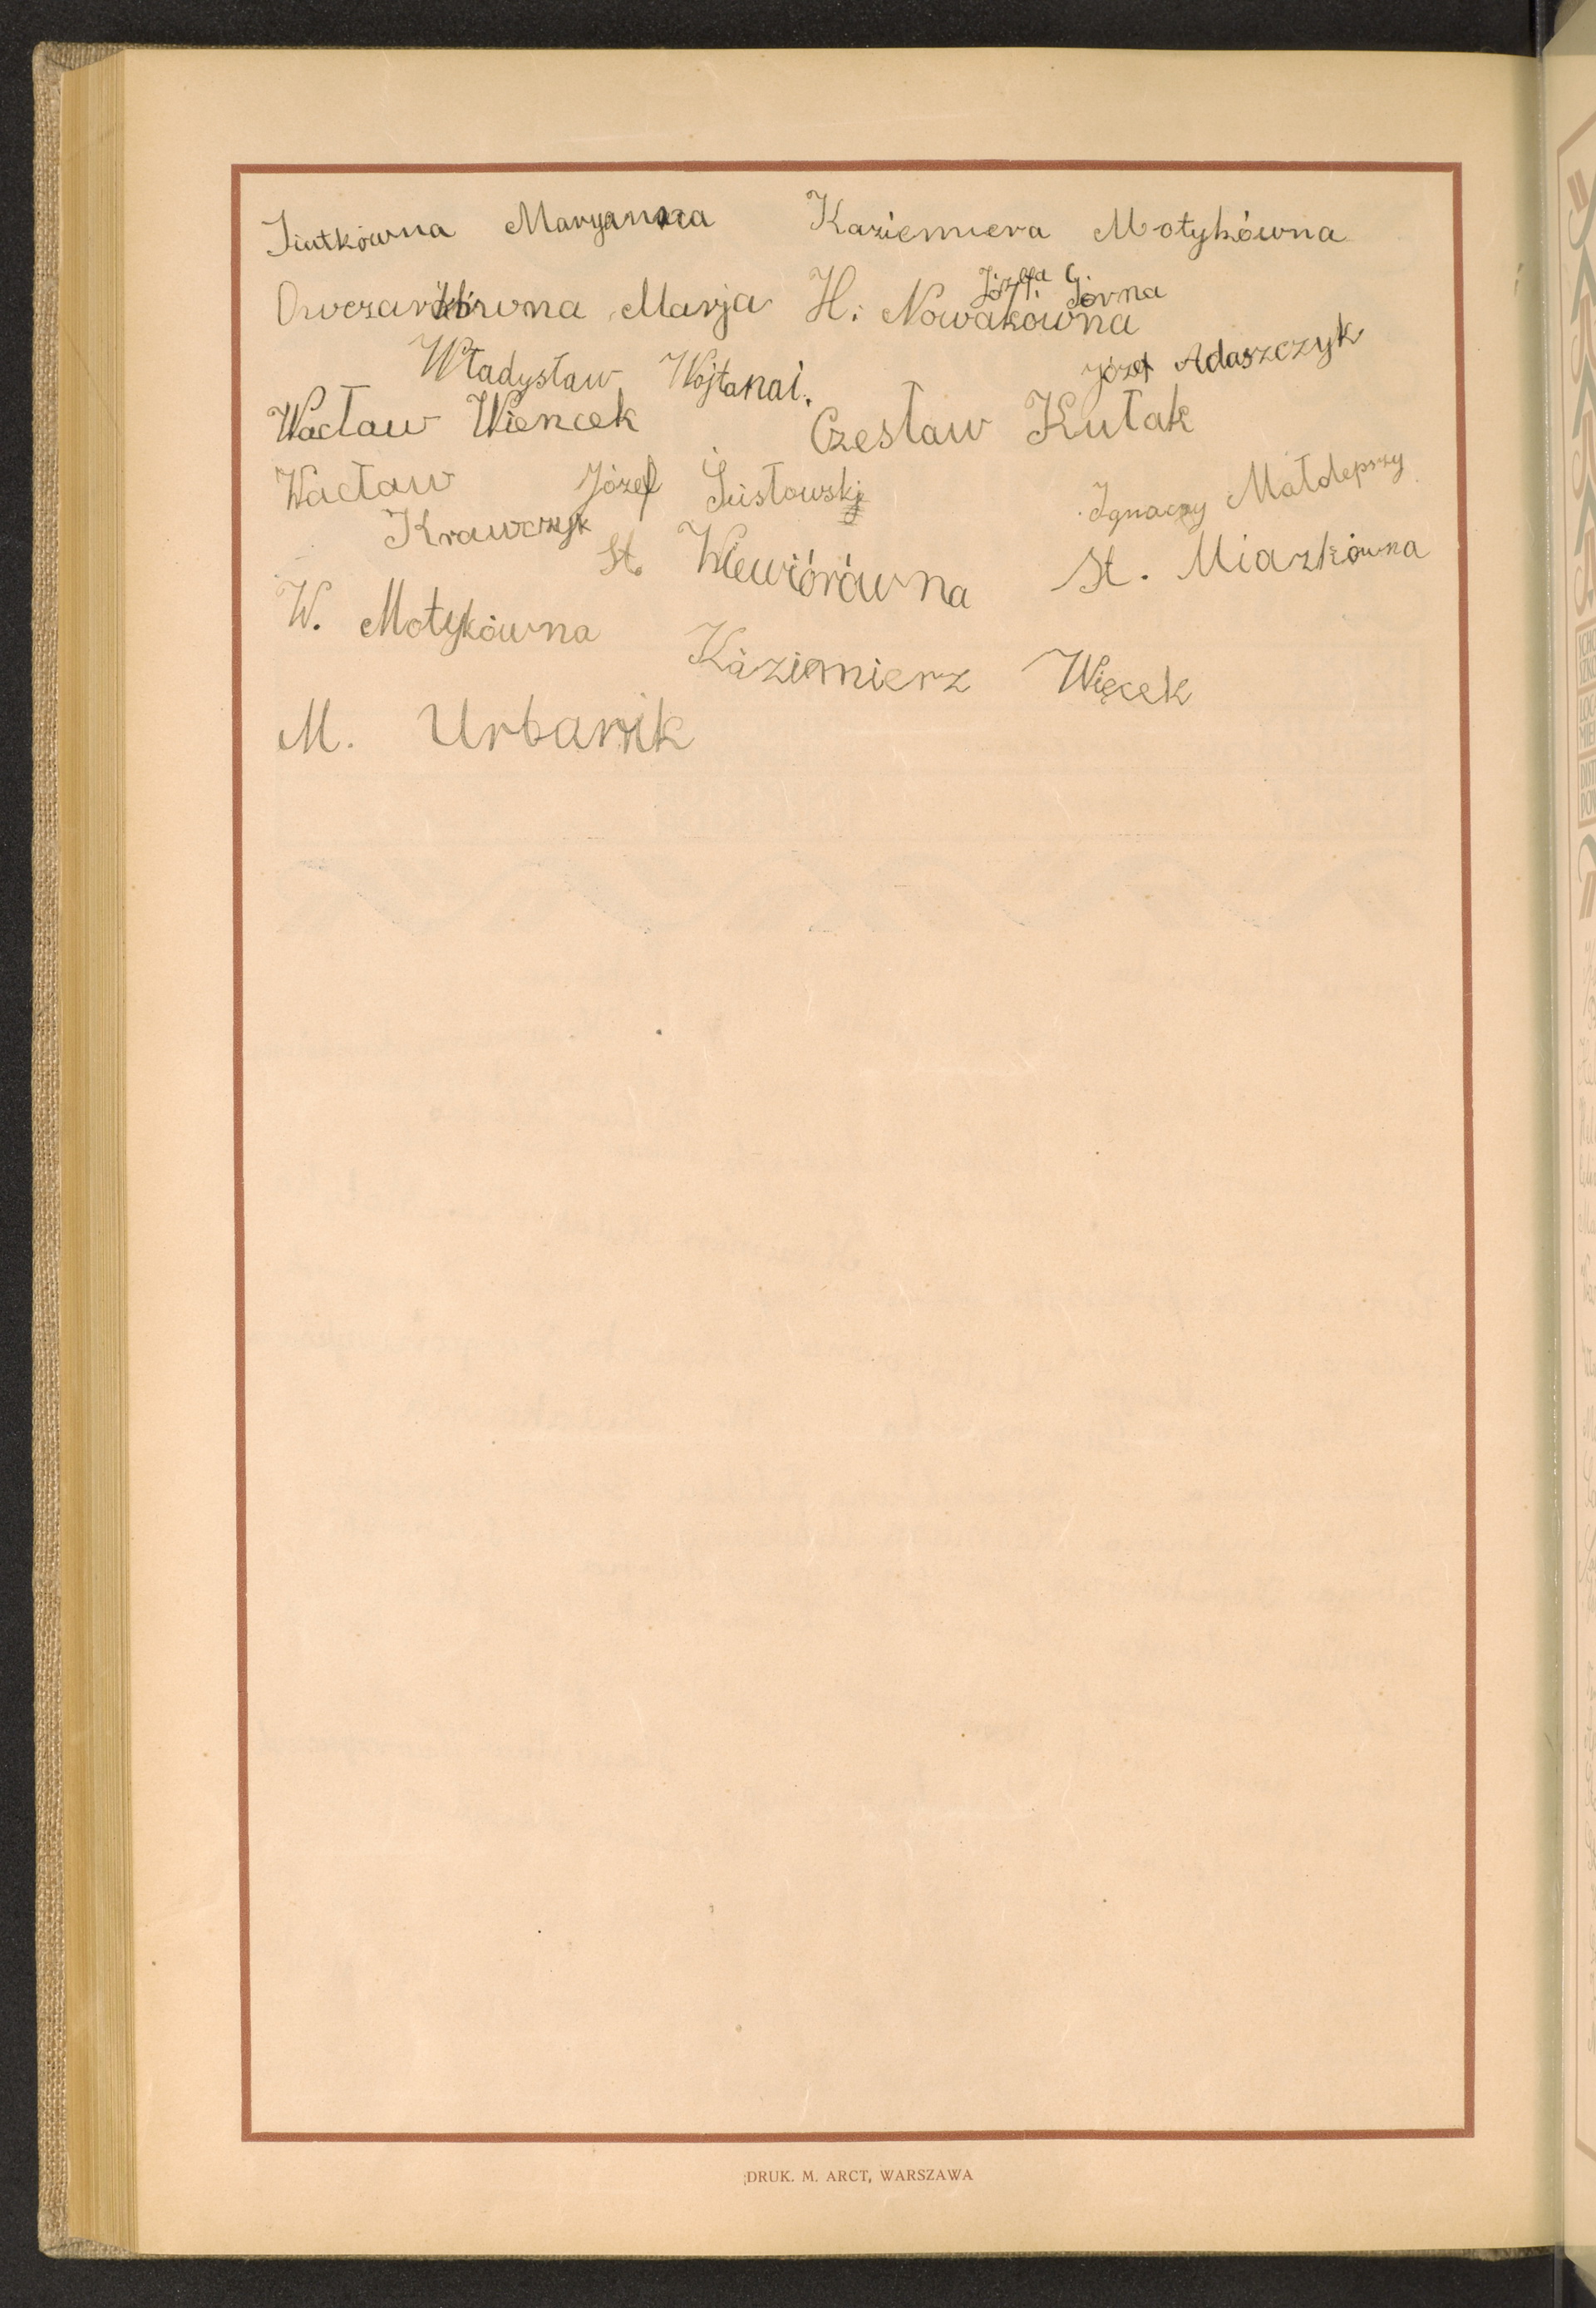 Siutkówna Maryanna Kaziemiera Motykówna
Owczarkówna Marja H. Nowakówna Józefa
Władysław Wojtanai. Józef Adaszczyk
Wacław Wiencek Czesław Kułak
Wacław Józef Sustowski Ignacny Małdeprzy
Krawczyk St. Wiewiórówna St. Miazkówna
W. Motykówna Kazimierz Więcek
M. Urbanik
DRUK. M. ARCT, WARSZAWA